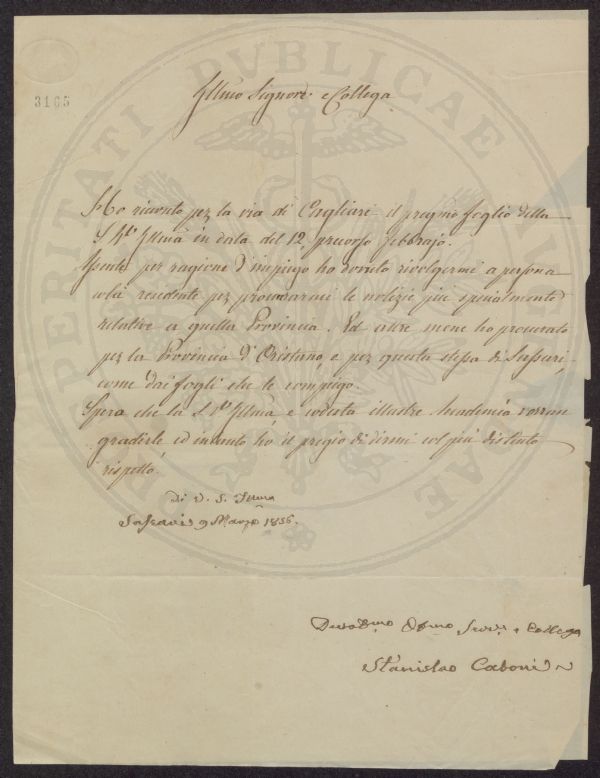 3105
Illmo Signore e Collega
Ho ricevuto per la via di Cagliari il pregmo foglio della
S. Va Illma in data del 12 precorso febbrajo.
Assente per ragione d'impiego ho dovuto rivolgermi a persona
colà residente per procurarmi le notizie più specialmente
relative a quella Provincia. Ed altre mene ho procurato
per la Provincia d'Oristano, e per questa stessa di Sassari,
come dai fogli che le compiego.
Spero che la S. Va Illma, e codesta illustre Accademia vorran
gradirle, ed intanto ho il pregio di dirmi col più distinto
rispetto.
Di V. S. Illma
Sassari 9 Marzo 1836.
Devotmo Obmo Serv. e Collega
Stanislao Caboni
PERITATI PUBLICAE